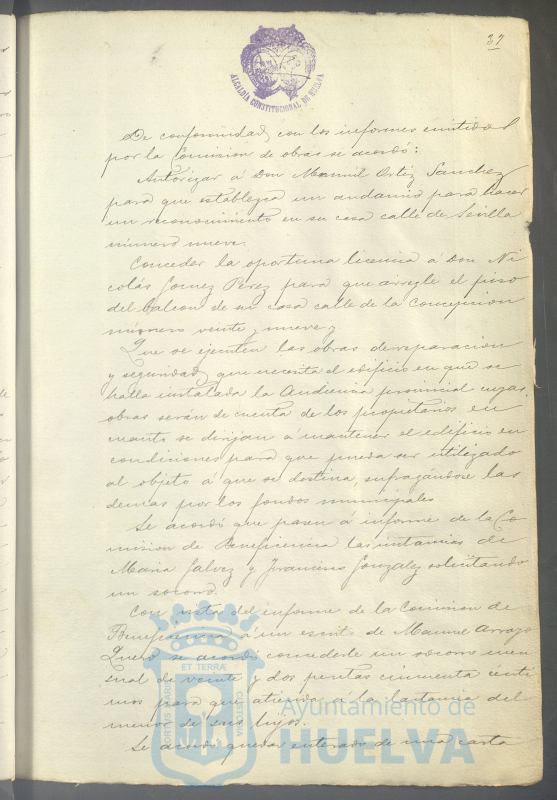 37
ALCALDÍA CONSTITUCIONAL DE HUELVA
De conformidad con los informes emitidos
por la Comision de obras se acordó:
Autorizar á Don Manuel Ortiz Sanchez
para que establezca un andamio para hacer
un reconocimiento en su casa calle de Sevilla
número nueve.
Conceder la oportuna licencia á Don Ni
colás Gomez Perez para que arregle el piso
del balcon de su casa calle de la Concepcion
número veinte y nueve y
Que se ejecuten las obras de reparacion
y seguridad que necesita el edificio en que se
halla instalada la Audiencia provincial cuyas
obras serán de cuenta de los propietarios en
cuanto se dirijan á mantener el edificio en
condiciones para que pueda ser utilizado
al objeto á que se destina, sufragándose las
demas por los fondos municipales
Se acordó que pasen á informe de la Co
mision de Beneficencia las instancias de
Maria Galvez y Francisco Gonzalez solicitando
un socorro.
Con vista del informe de la Comision de
Beneficencia á un escrito de Manuel Arroyo
Quero se acordó concederle un socorro men
sual de veinte y dos pesetas cincuenta cénti
mos para que atienda a la lactancia del
menor de sus hijos.
Se acordó quedar enterado de una carta
PORTUS MARIS
ET TERRAE
CUSTODIA
Ayuntamiento de
HUELVA